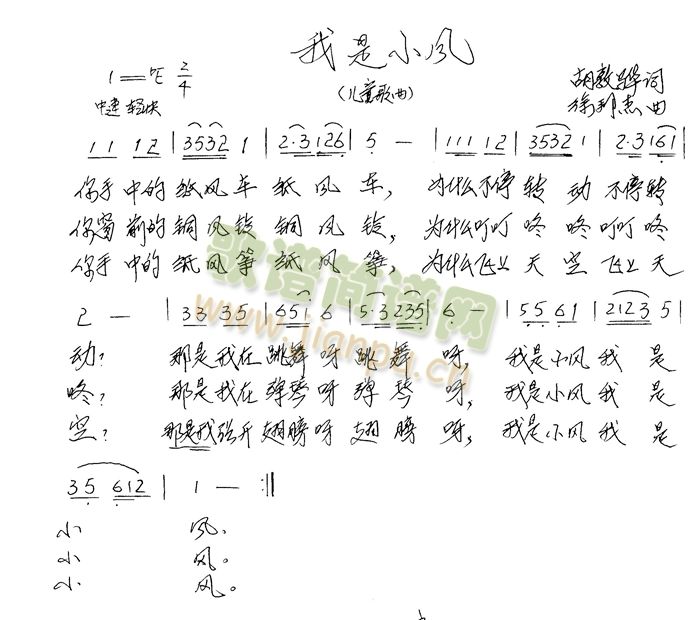 我是小风
(儿童歌曲)
1=♭E 2/4
中速 轻快
胡敦骅 词
徐邦杰 曲
1 1 1 2 | 3 5 3 2 1 | 2·3 1 2 6 | 5 — | 1 1 1 1 2 | 3 5 3 2 1 | 2·3 1 6 1 |
你手中的纸风车纸风车, 为什么不停转动不停转
你窗前的铜风铃铜风铃, 为什么叮叮咚咚叮叮咚
你手中的纸风筝纸风筝, 为什么飞上天空飞上天
2 — | 3 3 3 5 | 6 5 1 6 | 5·3 2 3 5 | 6 — | 5 5 6 1 | 2 1 2 3 5 |
动? 那是我在跳舞呀跳舞呀, 我是小风我是
咚? 那是我在弹琴呀弹琴呀, 我是小风我是
空? 那是我张开翅膀呀翅膀呀, 我是小风我是
3 5 6 1 2 | 1 — :||
小风.
小风。
小风。
歌谱简谱网
www.jianpu.cn